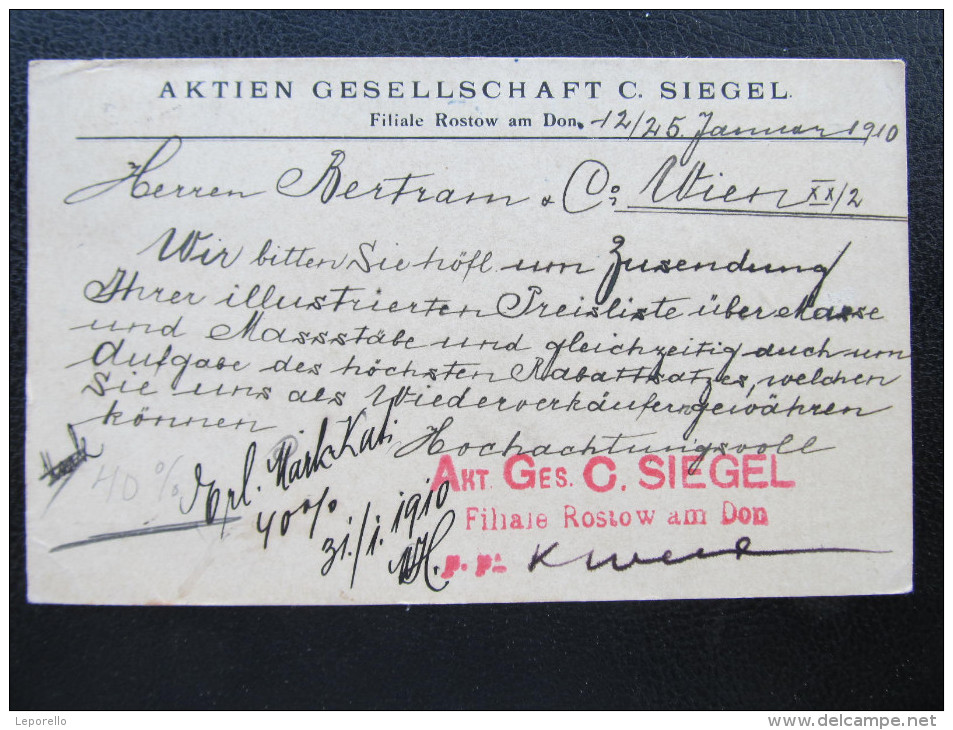 AKTIEN GESELLSCHAFT C. SIEGEL.
Filiale Rostow am Don, 12/25. Januar 1910
Herren Bertram & Co; Wien XX/2
Wir bitten Sie höfl. um Zusendung
Ihrer illustrierten Preisliste über Masse
und Massstäbe und gleichzeitig auch um
Aufgabe des höchsten Rabattsatzes, welchen
Sie uns als Wiederverkäufern gewähren
können
Hochachtungsvoll
40%
Erl. Mark Kat.
40%
31./1. 1910
AKT. GES. C. SIEGEL
Filiale Rostow am Don
p. pa
Leporello
www.delcampe.net